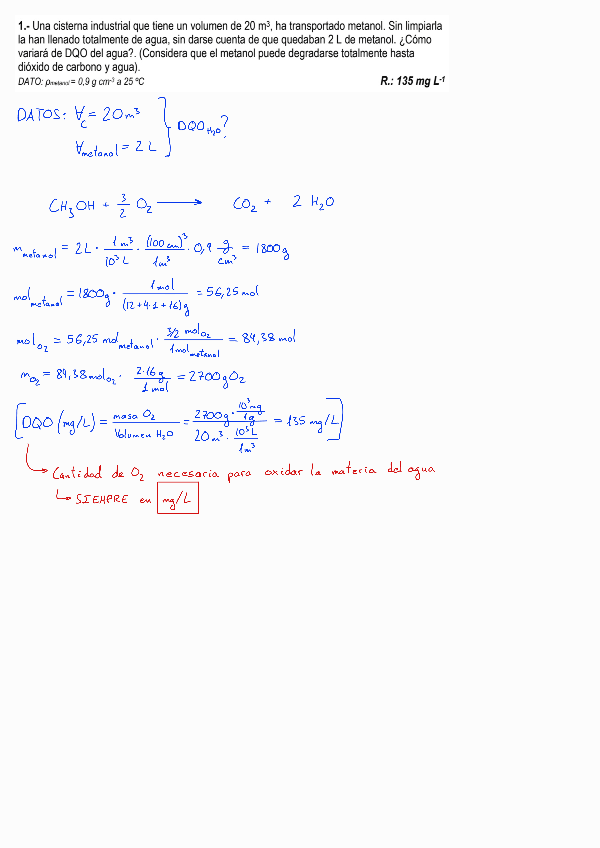 1.- Una cisterna industrial que tiene un volumen de 20 m³, ha transportado metanol. Sin limpiarla
la han llenado totalmente de agua, sin darse cuenta de que quedaban 2 L de metanol. ¿Cómo
variará de DQO del agua?. (Considera que el metanol puede degradarse totalmente hasta
dióxido de carbono y agua).
DATO: ρmetanol = 0,9 g cm⁻³ a 25 ºC R.: 135 mg L⁻¹
DATOS: V_C = 20 m³
V_metanol = 2 L
DQO_H₂O?
CH₃OH + 3/2 O₂ → CO₂ + 2 H₂O
m_metanol = 2 L · 1 m³/10³ L · (100 cm)³/1 m³ · 0,9 g/cm³ = 1800 g
mol_metanol = 1800 g · 1 mol/(12+4·1+16) g = 56,25 mol
mol_O₂ = 56,25 mol_metanol · 3/2 mol_O₂/1 mol_metanol = 84,38 mol
m_O₂ = 84,38 mol_O₂ · 2·16 g/1 mol = 2700 g O₂
[DQO (mg/L) = masa O₂/Volumen H₂O = 2700 g · 10³ mg/1 g / 20 m³ · 10³ L/1 m³ = 135 mg/L]
↳ Cantidad de O₂ necesaria para oxidar la materia del agua
↳ SIEMPRE en mg/L